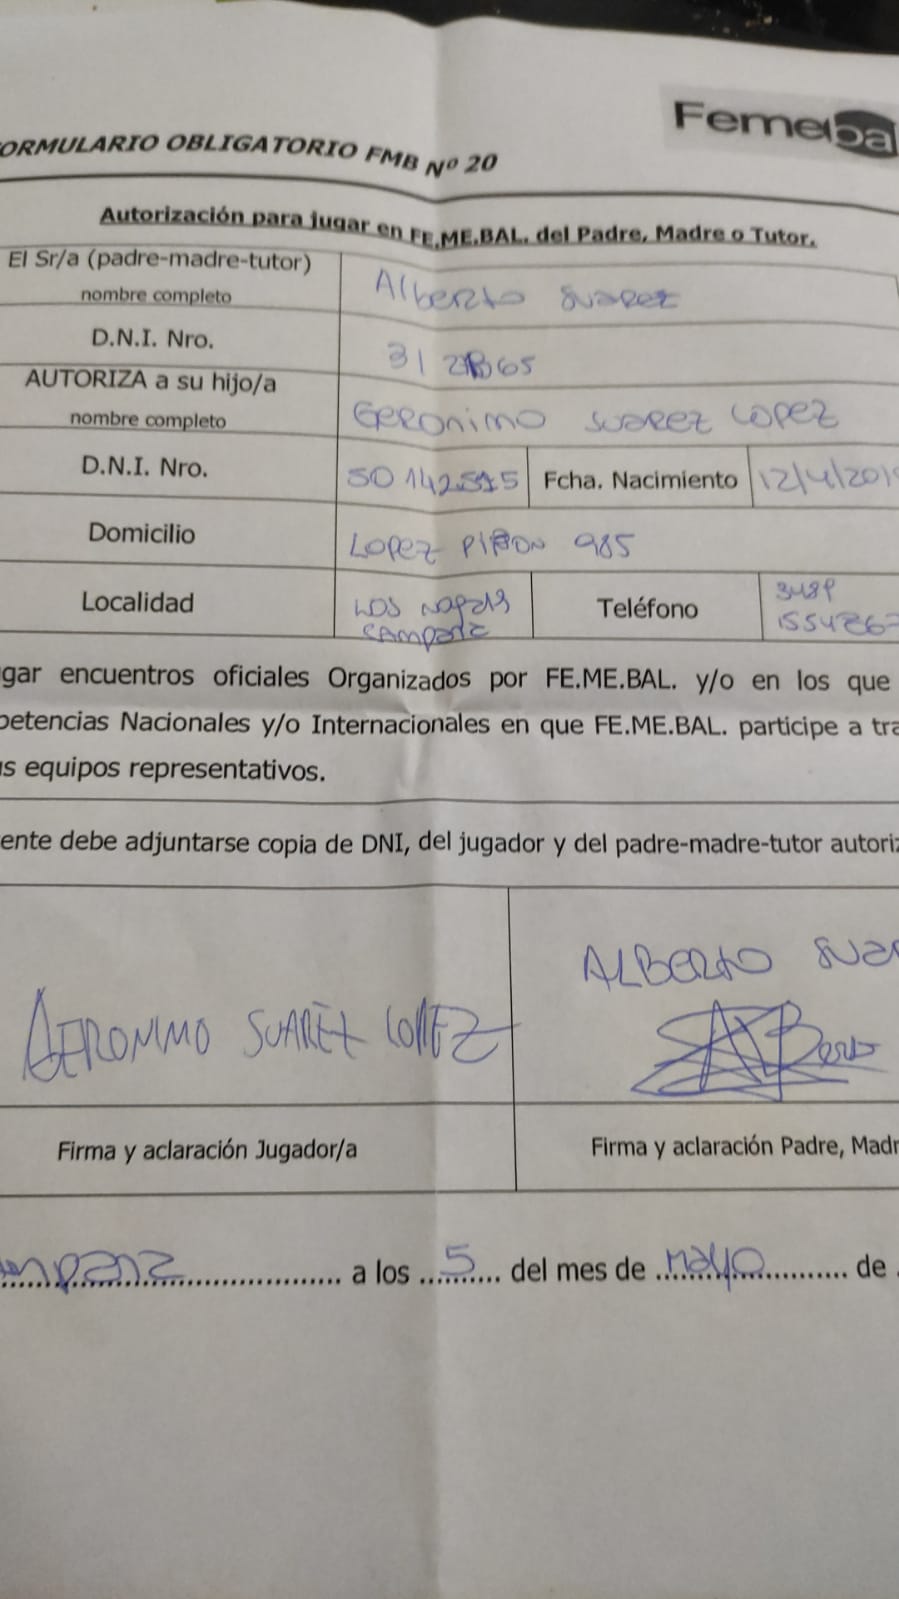 Femeba
ORMULARIO OBLIGATORIO FMB Nº 20
Autorización para jugar en FE.ME.BAL. del Padre, Madre o Tutor.
El Sr/a (padre-madre-tutor) nombre completo Alberto Suarez
D.N.I. Nro. 31
AUTORIZA a su hijo/a nombre completo Geronimo Suarez Lopez
D.N.I. Nro. Fcha. Nacimiento 12/4/201
Domicilio Lopez 985
Localidad Los Campana Teléfono 3489
155426
gar encuentros oficiales Organizados por FE.ME.BAL. y/o en los que
petencias Nacionales y/o Internacionales en que FE.ME.BAL. participe a tra
s equipos representativos.
ente debe adjuntarse copia de DNI, del jugador y del padre-madre-tutor autoriz
ALBERTO SUA
GERONIMO SUAREZ LOPEZ
Firma y aclaración Jugador/a Firma y aclaración Padre, Madr
mpana a los 5 del mes de mayo de